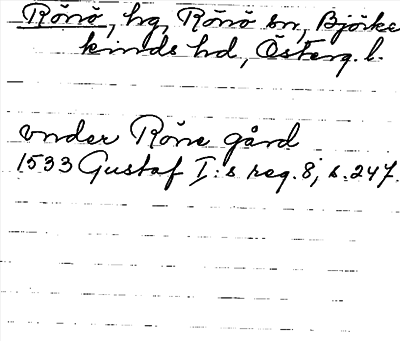 Rönö, hg, Rönö sn, Björke
kinds hd, Österg. l.
vnder Röne gård
1533 Gustaf I:s reg. 8, s. 247.